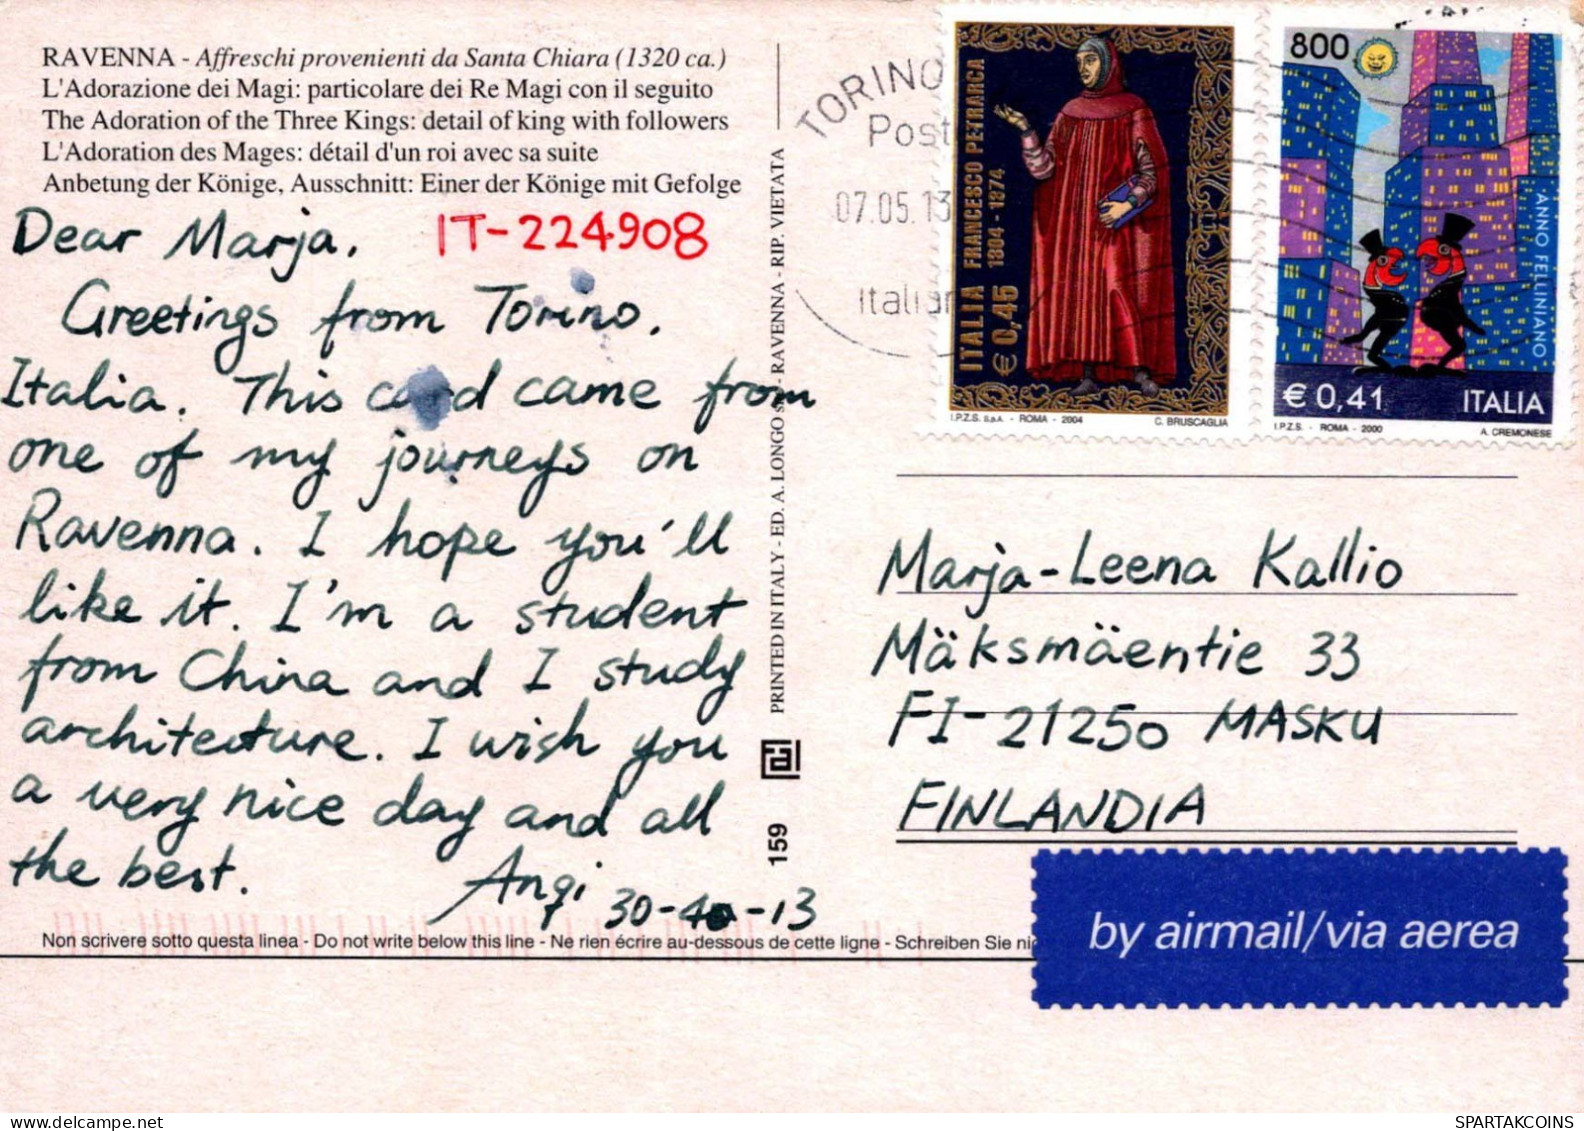 RAVENNA - Affreschi provenienti da Santa Chiara (1320 ca.)
L'Adorazione dei Magi: particolare dei Re Magi con il seguito
The Adoration of the Three Kings: detail of king with followers
L'Adoration des Mages: détail d'un roi avec sa suite
Anbetung der Könige, Ausschnitt: Einer der Könige mit Gefolge
Dear Marja, IT-224908
Greetings from Torino,
Italia. This card came from
one of my journeys on
Ravenna. I hope you'll
like it. I'm a student
from China and I study
architecture. I wish you
a very nice day and all
the best.
Anqi 30-4-13
Non scrivere sotto questa linea - Do not write below this line - Ne rien écrire au-dessous de cette ligne - Schreiben Sie
PRINTED IN ITALY - ED. A. LONGO - RAVENNA - RIP. VIETATA
159
TORINO
Post
07.05.13
ITALIA FRANCESCO PETRARCA
€ 0,45 1304 - 1374
I.P.Z.S. S.p.A. - ROMA - 2004 C. BRUSCAGLIA
800
ANNO FELLINIANO
€ 0,41 ITALIA
I.P.Z.S. - ROMA - 2000 A. CREMONESE
Marja-Leena Kallio
Mäksmäentie 33
FI-21250 MASKU
FINLANDIA
by airmail/via aerea
SPARTAKCOINS